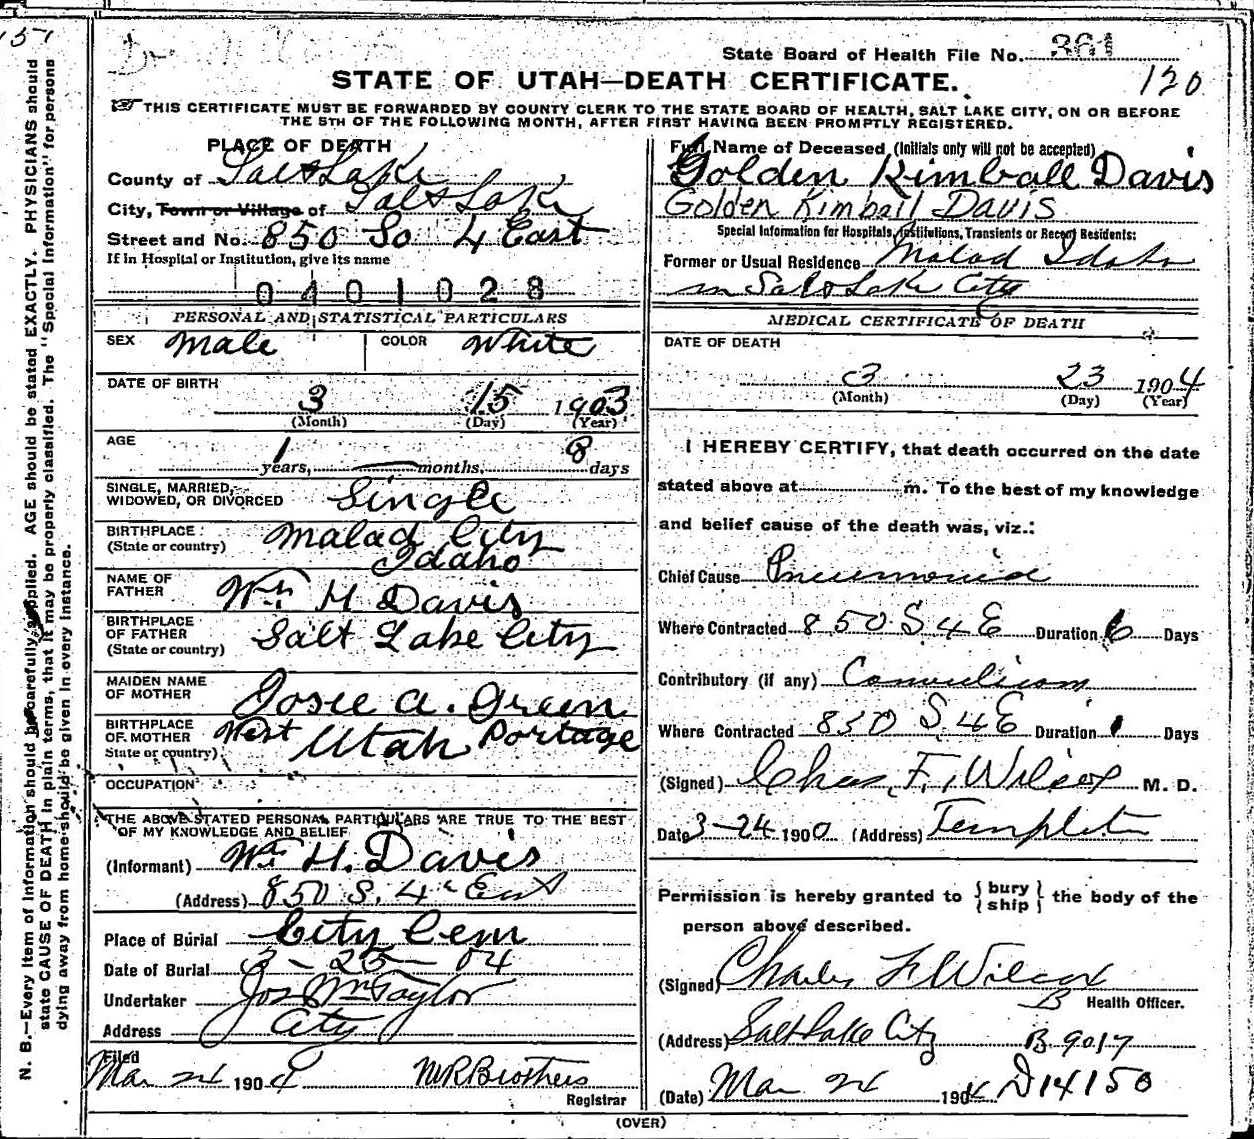 151
State Board of Health File No. 361
STATE OF UTAH—DEATH CERTIFICATE.
120
THIS CERTIFICATE MUST BE FORWARDED BY COUNTY CLERK TO THE STATE BOARD OF HEALTH, SALT LAKE CITY, ON OR BEFORE
THE 5TH OF THE FOLLOWING MONTH, AFTER FIRST HAVING BEEN PROMPTLY REGISTERED.
PLACE OF DEATH
County of Salt Lake
City, Town or Village of Salt Lake
Street and No. 850 So 4 East
If in Hospital or Institution, give its name
0401028
PERSONAL AND STATISTICAL PARTICULARS
SEX Male COLOR White
DATE OF BIRTH
3 15 1903
(Month) (Day) (Year)
AGE
1 years, — months, 8 days
SINGLE, MARRIED,
WIDOWED, OR DIVORCED Single
BIRTHPLACE Malad City
(State or country) Idaho
NAME OF
FATHER Wm H Davis
BIRTHPLACE
OF FATHER Salt Lake City
(State or country)
MAIDEN NAME
OF MOTHER Josie A. Green
BIRTHPLACE
OF MOTHER West Portage
State or country) Utah
OCCUPATION
THE ABOVE STATED PERSONAL PARTICULARS ARE TRUE TO THE BEST
OF MY KNOWLEDGE AND BELIEF
(Informant) Wm H. Davis
(Address) 850 S. 4th East
Place of Burial City Cem
Date of Burial 3-25-04
Undertaker Jos Wm Taylor
Address City
Filed
Mar 24 1904 M R Brothers
Registrar
Full Name of Deceased (Initials only will not be accepted)
Golden Kimball Davis
Golden Kimball Davis
Special Information for Hospitals, Institutions, Transients or Recent Residents:
Former or Usual Residence Malad Idaho
in Salt Lake City
MEDICAL CERTIFICATE OF DEATH
DATE OF DEATH
3 23 1904
(Month) (Day) (Year)
I HEREBY CERTIFY, that death occurred on the date
stated above at m. To the best of my knowledge
and belief cause of the death was, viz.:
Chief Cause Pneumonia
Where Contracted 850 S 4 E Duration 6 Days
Contributory (if any) Convulsions
Where Contracted 850 S 4 E Duration 1 Days
(Signed) Chas. F. Wilcox M. D.
Date 3-24 1900 (Address) Templeton
Permission is hereby granted to {bury ship} the body of the
person above described.
(Signed) Charles F Wilcox
B Health Officer.
(Address) Salt Lake City B-9017
(Date) Mar 24 1904 D14150
(OVER)
N. B.—Every item of information should be carefully supplied. AGE should be stated EXACTLY. PHYSICIANS should
state CAUSE OF DEATH in plain terms, that it may be properly classified. The "Special Information" for persons
dying away from home should be given in every instance.